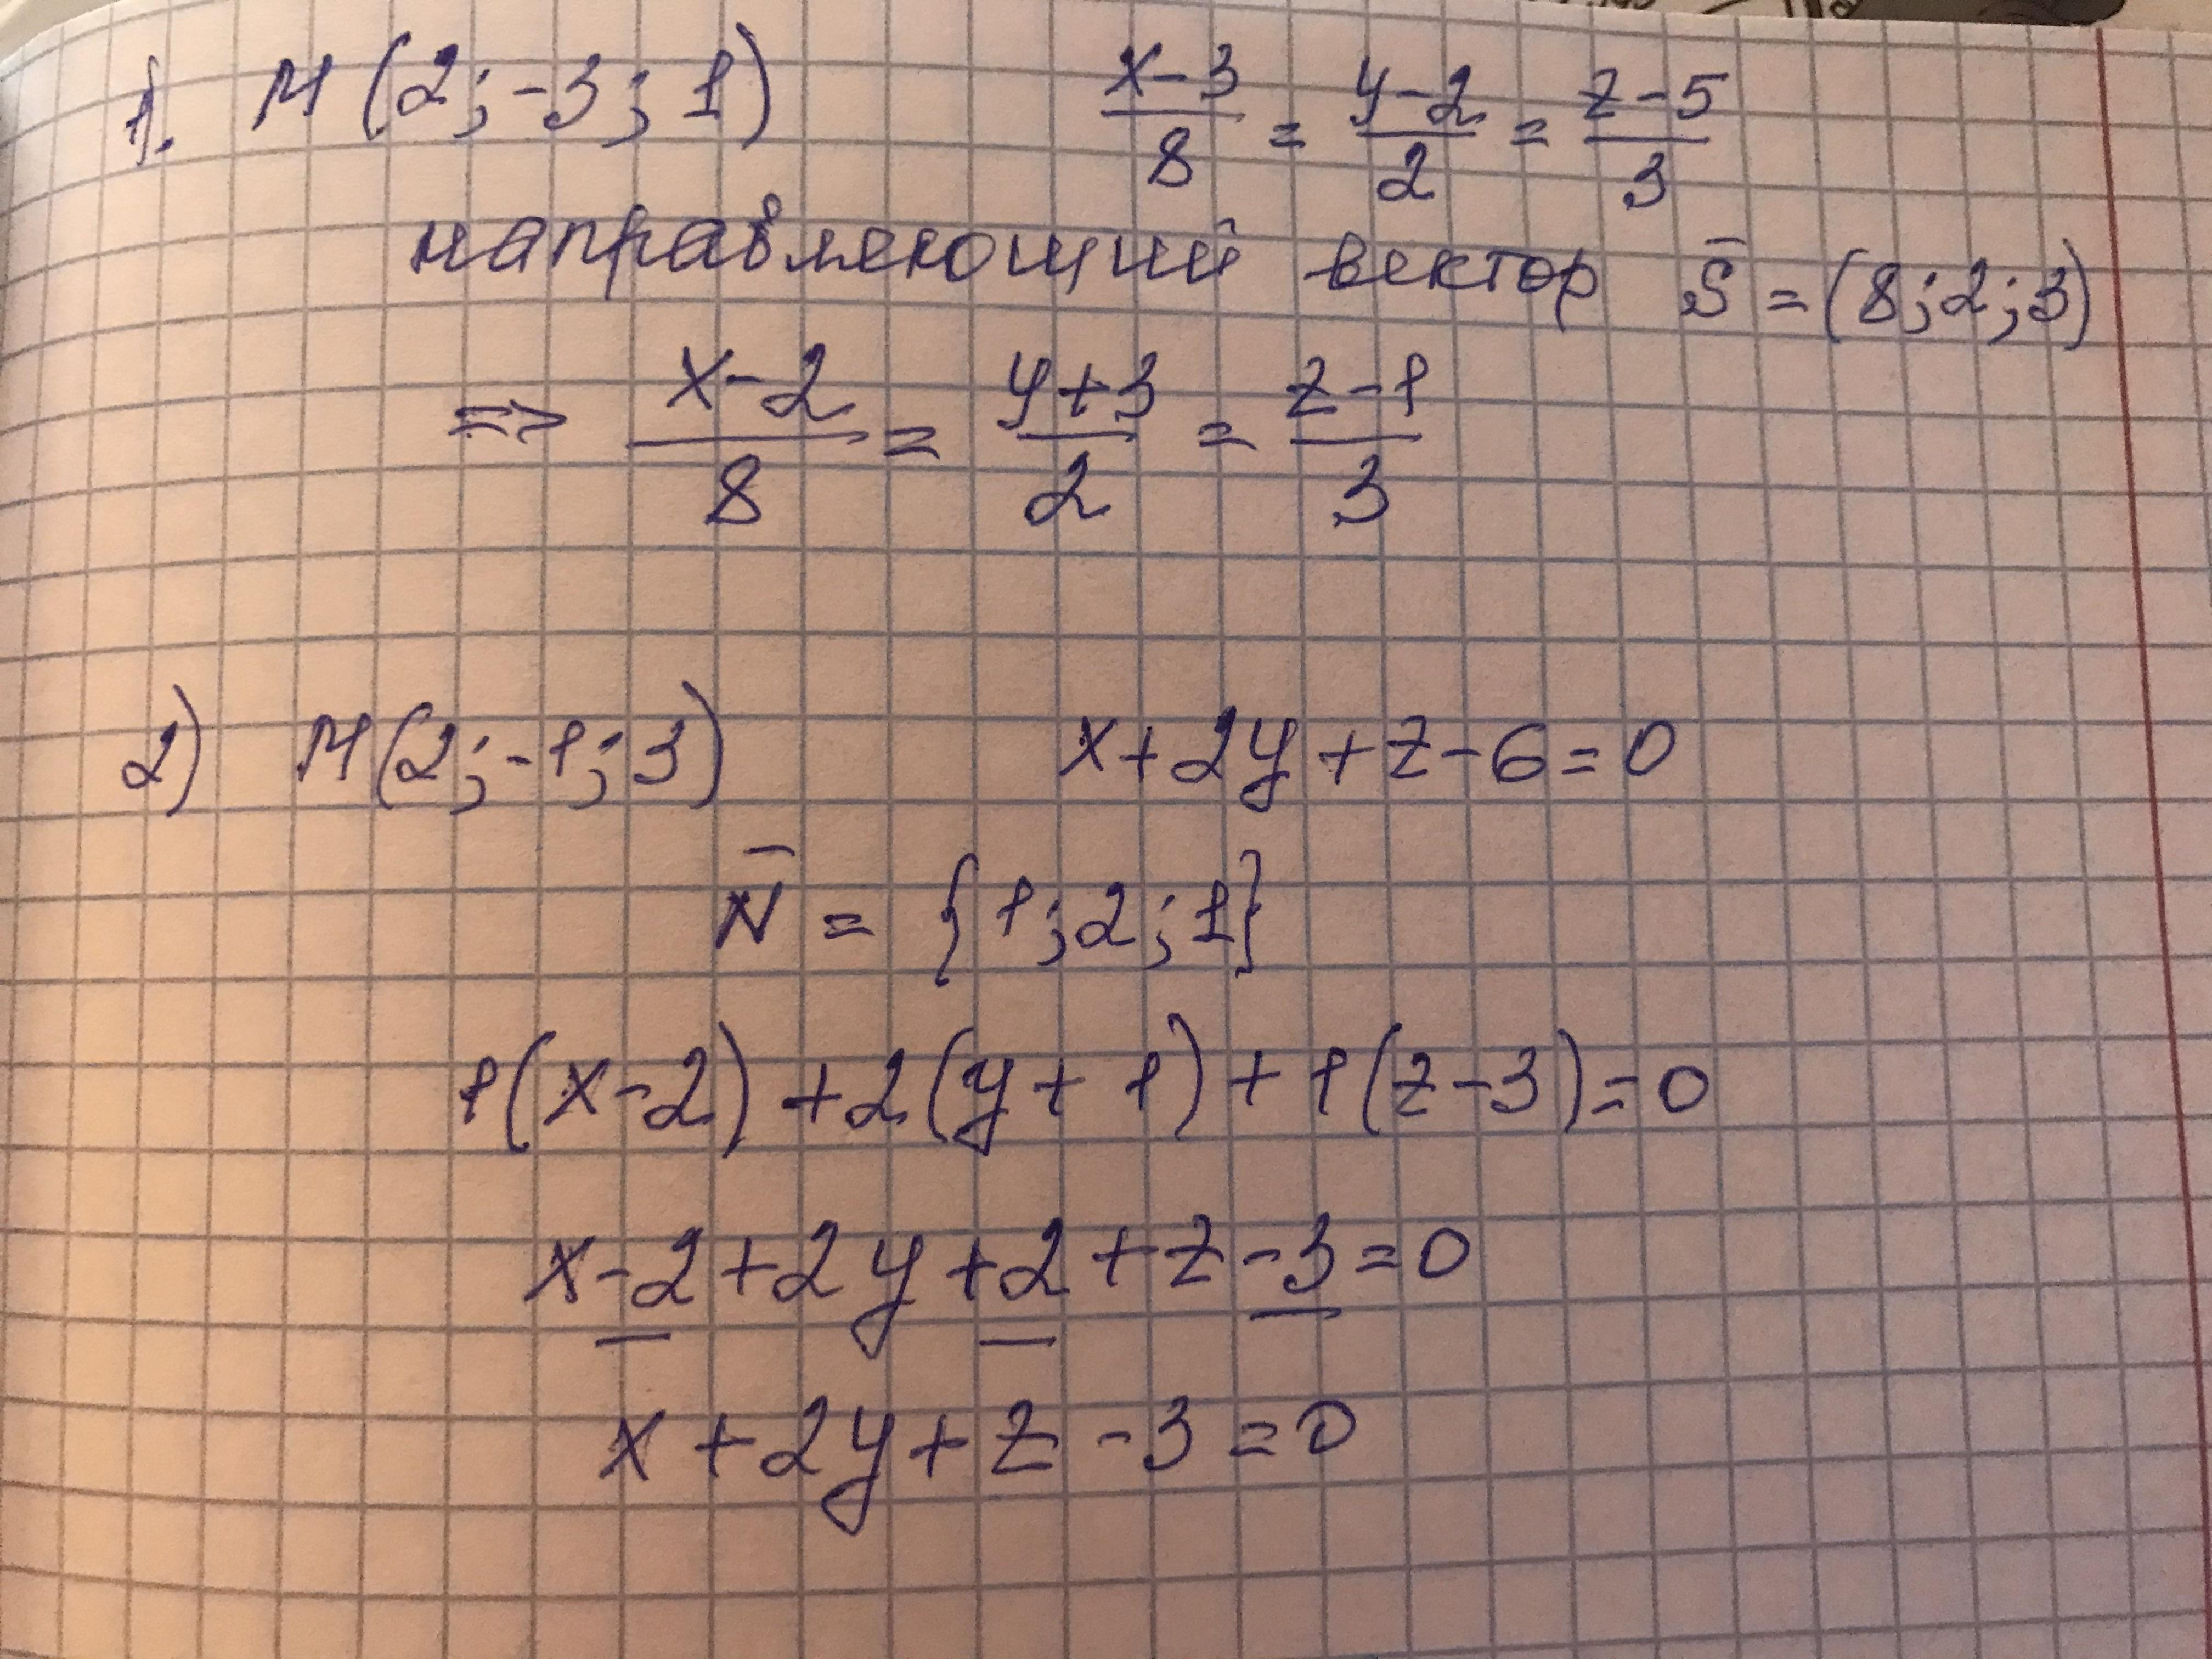 1. M (2; -3; 1) (x-3)/8 = (y-2)/2 = (z-5)/3
направляющий вектор S̄ = (8; 2; 3)
=> (x-2)/8 = (y+3)/2 = (z-1)/3
2) M(2; -1; 3) x+2y+z-6=0
N̄ = {1; 2; 1}
1(x-2)+2(y+1)+1(z-3)=0
x-2+2y+2+z-3=0
x+2y+z-3=0